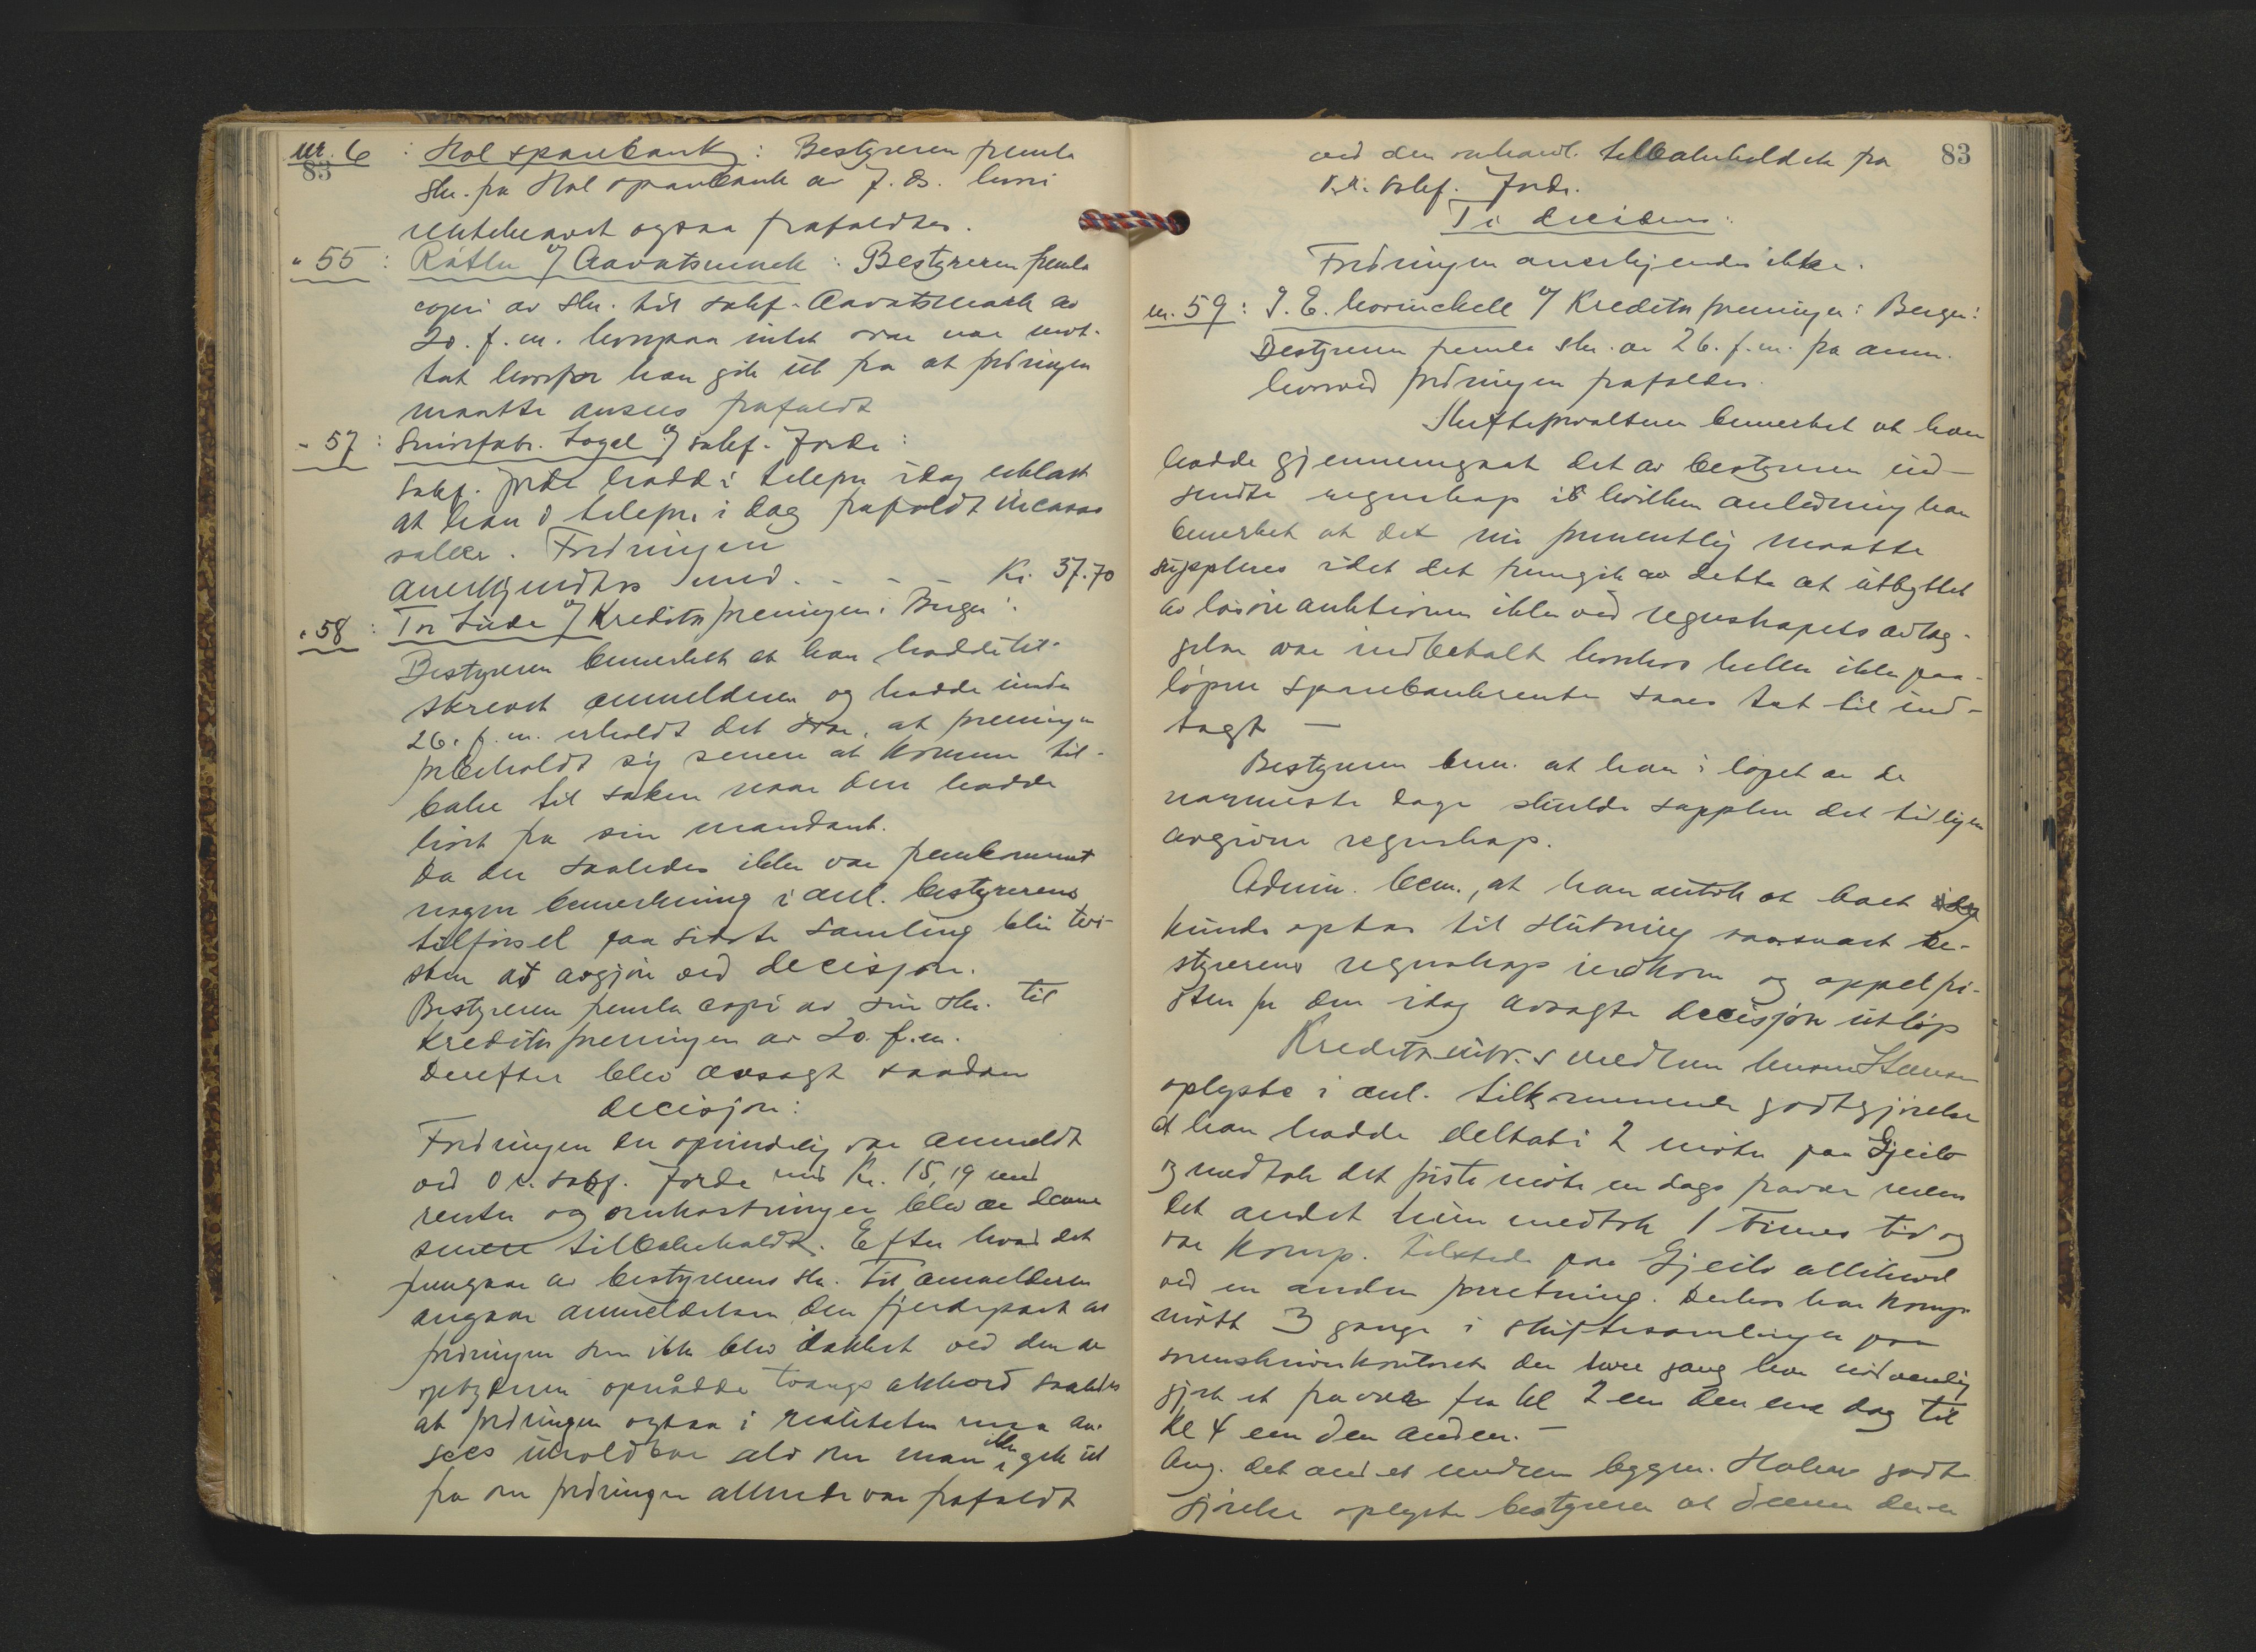 nr. 6 : Hol sparebank : Bestyreren fremla
83
skr. fra Hol sparebank av 7. ds. hvori
rentekravet ogsaa frafaldtes.
" 55 : v/ Aavatsmark : Bestyreren fremla
copi av skr. til sakf. Aavatsmark av
20. f. m. hvorpaa intet svar var mot-
tat hvorfor han gik ut fra at fordringen
maatte ansees frafaldt
" 57 : v/ sakf. Jorde :
sakf. Jorde hadde i telefon idag uttalt
at han i telefon i dag frafaldt incasso
salær. Fordringen
anerkjendtes med - - - Kr. 37.70
" 58 : Tor v/ Kreditorforeningen i Bergen :
Bestyreren bemerket at han hadde til-
skrevet anmelderen og hadde under
26. f. m. erholdt det svar, at foreningen
forbeholdt sig senere at komme til-
bake til saken naar den hadde
hørt fra sin mandant.
Da der saaledes ikke var fremkommet
nogen bemerkning i anl. bestyrerens
tilførsel paa sidste samling blir tvi-
sten at avgjøre ved decisjon.
Bestyreren fremla copi av sin skr. til
Kreditorforeningen av 20. f. m.
Derefter blev avsagt saadan
decisjon :
Fordringen der oprindelig var anmeldt
ved o.r. sakf. Jorde med Kr. 15,19 med
renter og omkostninger blev av denne
senere tilbakeholdt. Efter hvad det
fremgaar av bestyrerens skr. til anmelderen
angaar anmeldelsen den fjerdepart av
fordringen som ikke blev dækket ved den av
opnådde tvangsakkord saaledes
at fordringen ogsaa i realiteten maa an-
sees uholdbar selv om man ikke gik ut
fra om fordringen allerede var frafaldt
83
ved den omhandl. tilbakeholdelse fra
o.r. sakf. Jorde.
Ti decideres :
Fordringen anerkjendes ikke.
nr. 59 : J. E. v/ Kreditorforeningen i Bergen :
Bestyreren fremla skr. av 26. f. m. fra anm.
hvorved fordringen frafaldes.
Skifteforvalteren bemerket at han
hadde gjennemgaat det av bestyreren ind-
sendte regnskap i hvilken anledning han
bemerket at det maatte
suppleres idet det fremgik av dette at utbyttet
av løsøreauktionen ikke ved regnskapets avlæg-
gelse var indbetalt hvorhos heller ikke paa-
løpne sparebankrenter saaes tat til ind-
tægt —
Bestyreren bem. at han i løpet av de
nærmeste dage skulde supplere det tidligere
avgivne regnskap.
Admin. bem., at han antok at boet
kunde optas til slutning saasnart be-
styrerens regnskap indkom og appelfri-
sten for den idag avsagte decisjon utløp
Kreditorutv.s medlem
oplyste i anl. tilkommende godtgjørelse
at han hadde deltat i 2 møter paa Gjeilo
og medtok det første møte en dags fravær mens
det andet kun medtok 1 times tid og
var komp. tilstede paa Gjeilo allikevel
ved en anden forretning. Derhos har komp.
møtt 3 gange i skiftesamlinger paa
sorenskriverkontoret der hver gang har nødvendig-
gjort et fravær fra kl 2 em den ene dag til
kl 4 em den anden. —
Ang. det andet medlem byggm. godt-
gjørelse oplyste bestyreren at denne